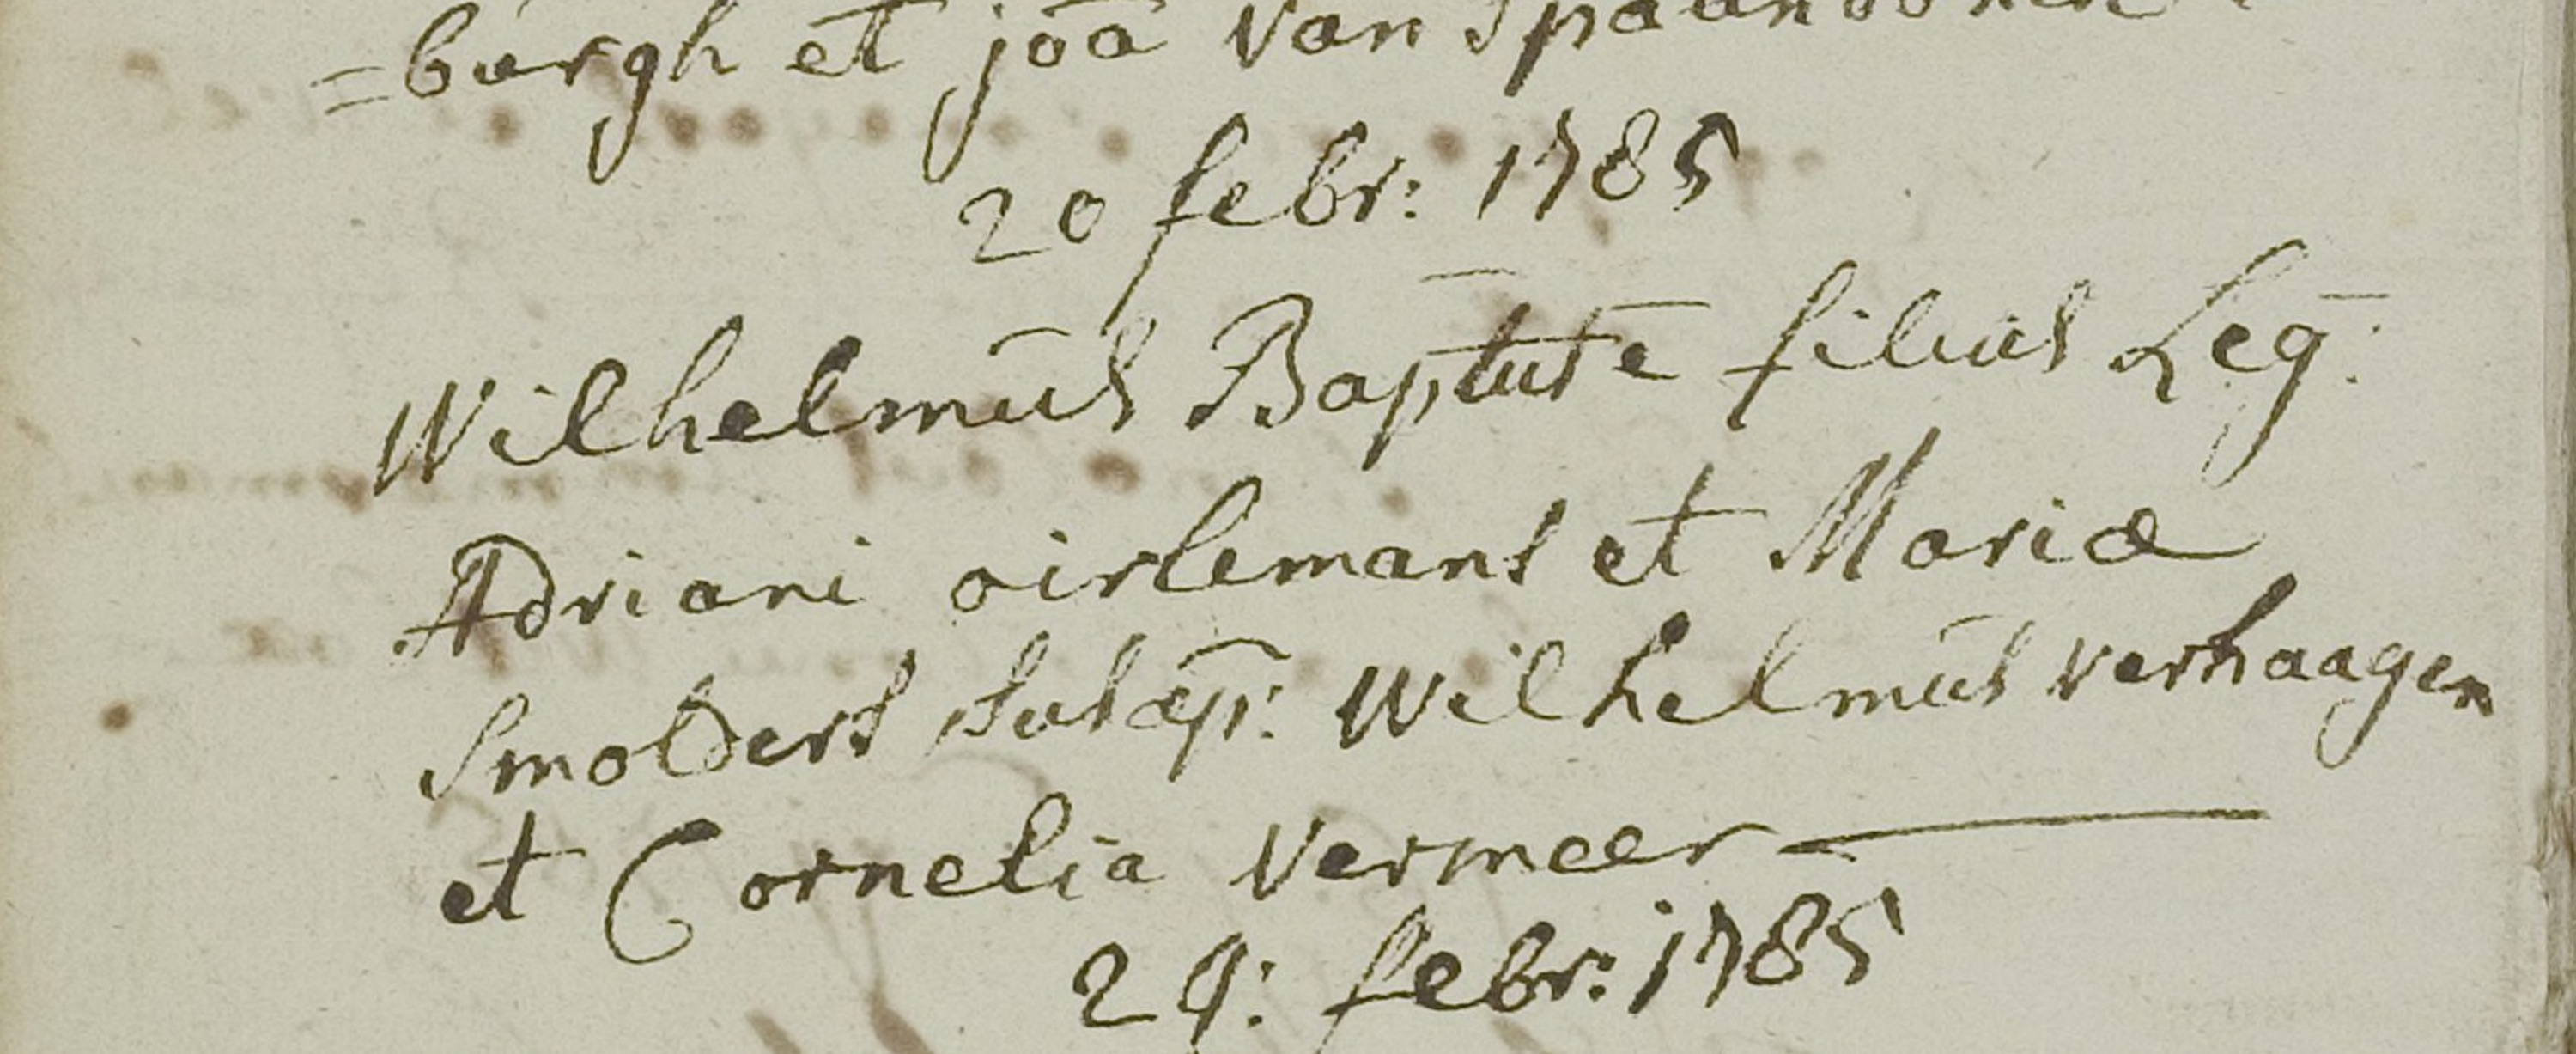 =burgh et joā van Spaandonck
20 febr: 1785
Wilhelmus Baptūs ē filius Leg̅:
Adriani oirlemans et Mariæ
Smolders Suscep: Wilhelmus verhaagen
et Cornelia vermeer
24: febr: 1785